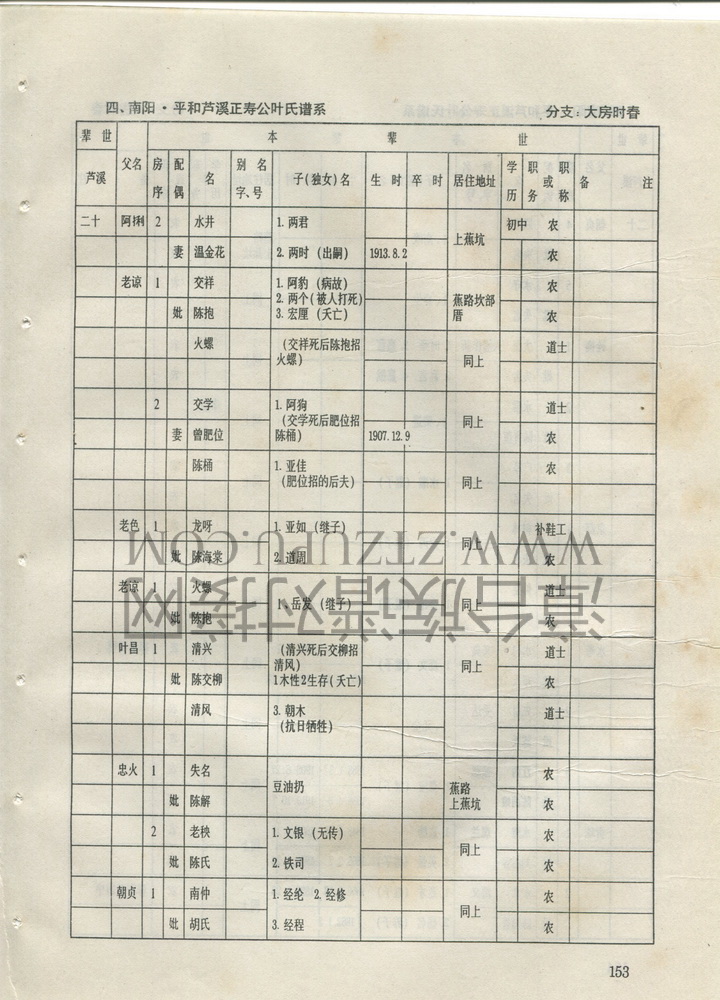 四、南阳·平和芦溪正寿公叶氏谱系 分支：大房时春
辈世 本辈世
芦溪 父名 房序 配偶 名 别名字、号 子(独女)名 生时 卒时 居住地址 学历 职或职务称 备注
二十 阿搠 2 水井 1.两君 上蕉坑 初中 农
妻 温金花 2.两时（出嗣） 1913.8.2 农
老谅 1 交祥 1.阿豹（病故） 农
2.两个（被人打死） 蕉路坎部厝
妣 陈抱 3.宏厘（夭亡） 农
火螺 （交祥死后陈抱招火螺） 同上 道士
2 交学 1.阿狗 同上 道士
妻 曾肥位 （交学死后肥位招陈桶） 1907.12.9 农
陈桶 1.亚佳 同上 农
（肥位招的后夫）
老色 1 龙呀 1.亚如（继子） 同上 补鞋工
妣 陈海棠 2.道周 农
老谅 1 火螺 1、岳发（继子） 同上 道士
妣 陈抱 农
叶昌 1 清兴 （清兴死后交柳招清风） 同上 道士
妣 陈交柳 1木性2生存（夭亡） 农
清风 3.朝木 道士
（抗日牺牲）
忠火 1 失名 豆油扔 蕉路 农
妣 陈解 上蕉坑 农
2 老秧 1.文银（无传） 同上 农
妣 陈氏 2.铁司 农
朝贞 1 南仲 1.经纶 2.经修 同上 农
妣 胡氏 3.经程 农
153
WWW.ZTZUFU.COM
漳台族谱对接网